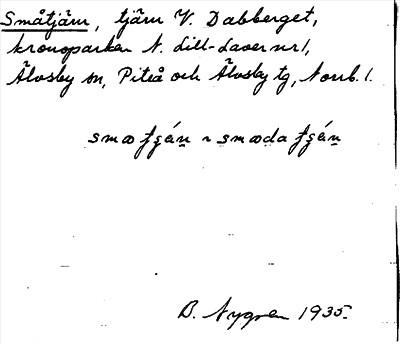 Småtjärn, tjärn V. Dabberget,
kronoparken N. Lill-Laver nr 1,
Älvsby sn, Piteå och Älvsby tg, Norrb. l.
smæ ʄʂán ~ smæda ʄʂán
B. Nygren 1935.